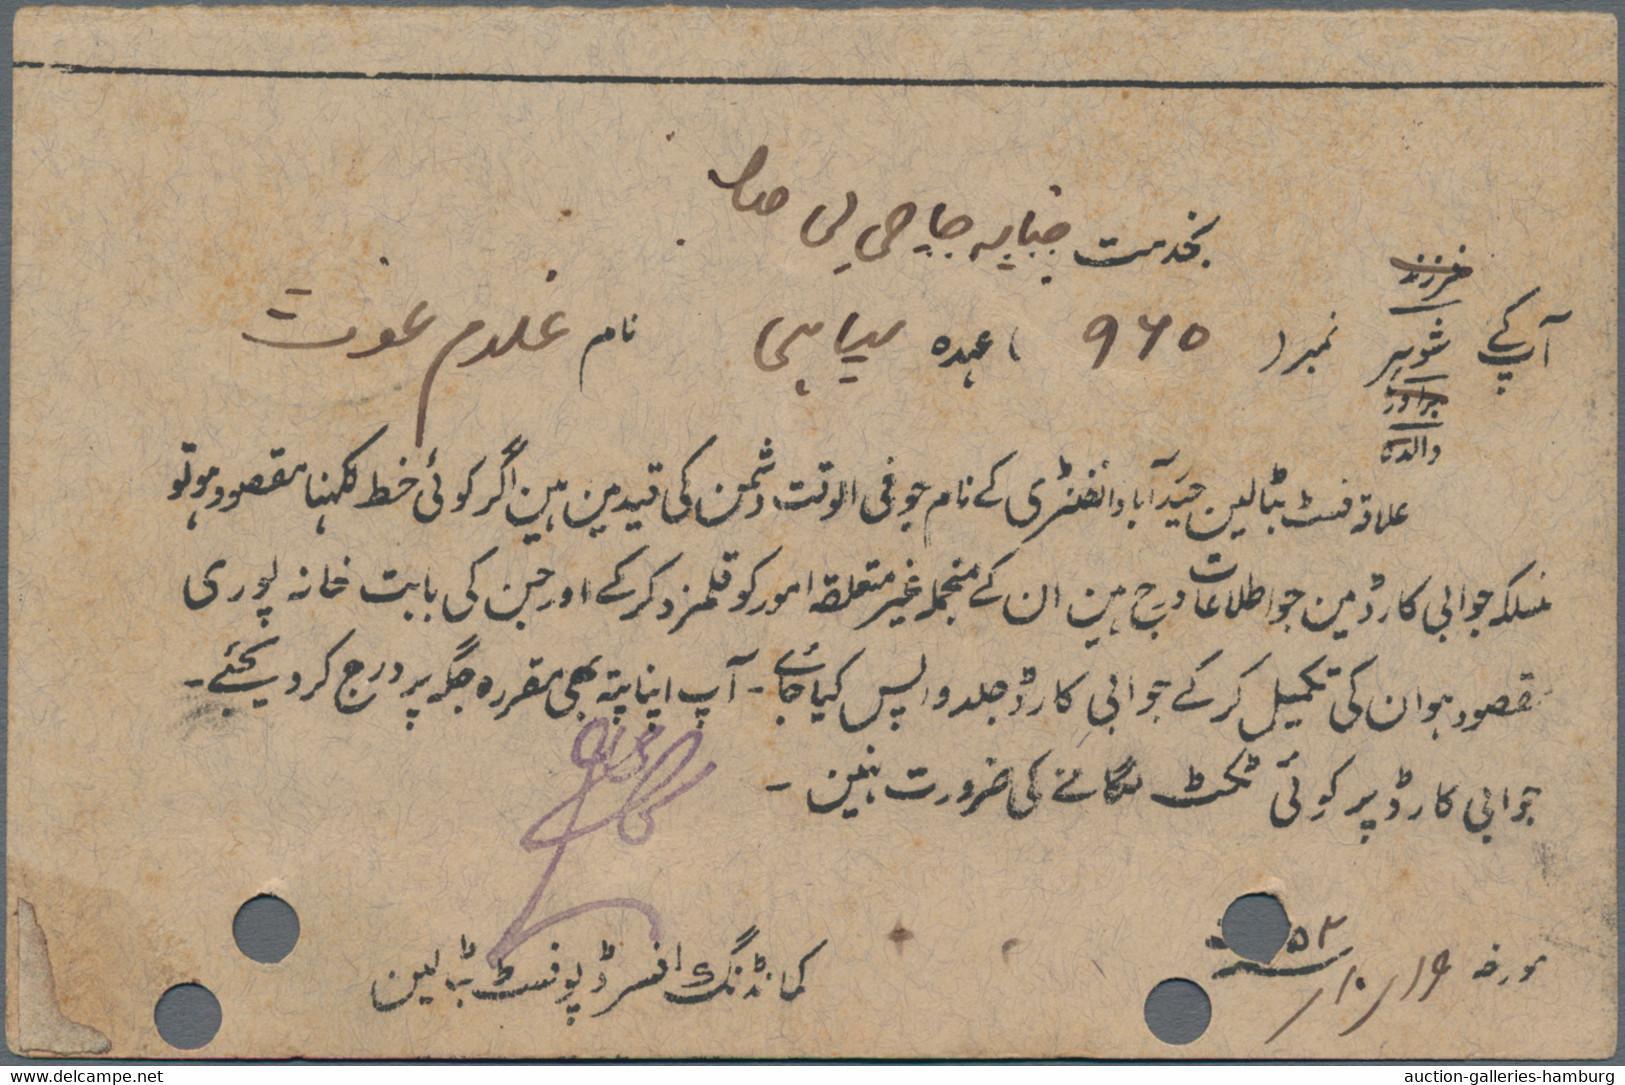 بخدمت
فرزند
آپ کے شوہر نمبر( ۹۶۵ ) عہدہ سپاہی نام غلام غوث
برادر
والدہ
علاقہ فسٹ بٹالین حیدرآباد انفنٹری کے نام جو فی الوقت دشمن کی قید مین ہین اگر کوئی خط لکہنا مقصود ہو تو
منسلکہ جوابی کارڈ مین جو اطلاعات درج ہین ان کے منجملہ غیر متعلقہ امور کو قلمزد کر کے اور جن کی بابت خانہ پوری
مقصود ہو ان کی تکمیل کر کے جوابی کارڈ جلد واپس کیا جائے ۔ آپ اپنا پتہ بھی مقررہ جگہ پر درج کر دیجئے ۔
جوابی کارڈ پر کوئی ٹکٹ لگانے کی ضرورت نہین ۔
مورخہ ۱۶/۱۰/ ۵۲
کمانڈنگ افسر ڈپو فسٹ بٹالین
www.delcampe.net
auction-galleries-hamburg